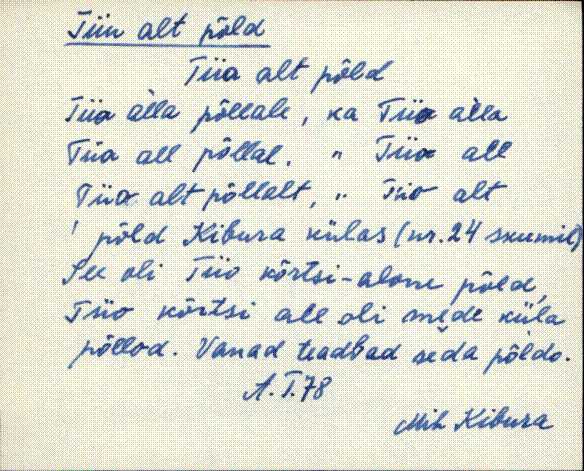 Tiiu alt põld
Tiia alt põld
Tiia alla põllale, ka Tiio alla
Tiia all põllal. " Tiio all
Tiia alt põllalt, " Tiio alt
' põld Kibura külas (nr. 24 skeemil)
See oli Tiio kõrtsi-alone põld,
Tiio kõrtsi all oli mede küla
põllod. Vanad teadbad seda põldo.
A. T. 78
Mih Kibura